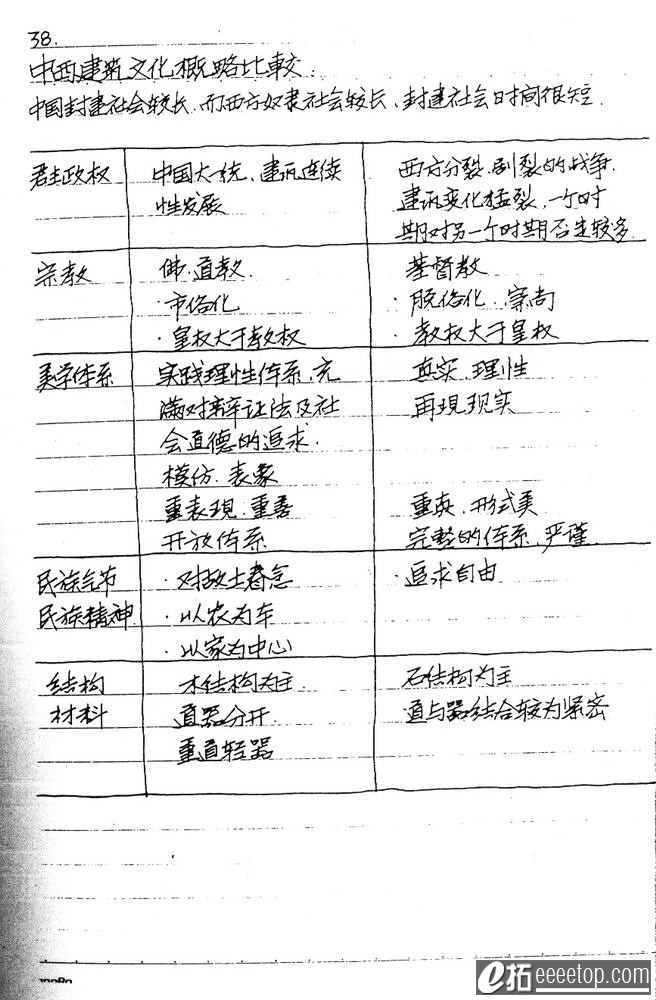 38.
中西建筑文化概略比較
中国封建社会较长、而西方奴隶社会较长、封建社会时间很短.
君主政权 中国大一统、建筑连续 西方分裂、剧裂的战争.
性发展 建筑变化猛裂,一个时
期对另一个时期否定较多.
宗教 佛.道教. 基督教
·市俗化 ·脱俗化.崇尚
·皇权大于教权 ·教权大于皇权
美学体系 实践理性体系,充 真实.理性
满对辩证法及社 再現现实
会道德的追求.
模仿.表象
重表現.重善 重真.形式美
开放体系 完整的体系.严谨.
民族气节 ·对故土眷念 ·追求自由
民族精神 ·以农为本
·以家为中心
结构 木结构为主. 石结构为主
材料 道器分开 道与器结合较为紧密
重道轻器
e拓 eeeetop.com